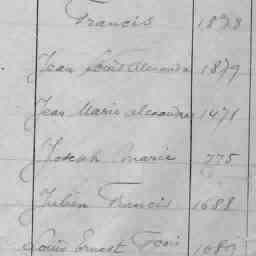 Francis 1878
Jean Louis Alexandre 1879
Jean Marie alexandre 1471
Joseph Marie 775
Julien Francis 1688
Louis Ernest